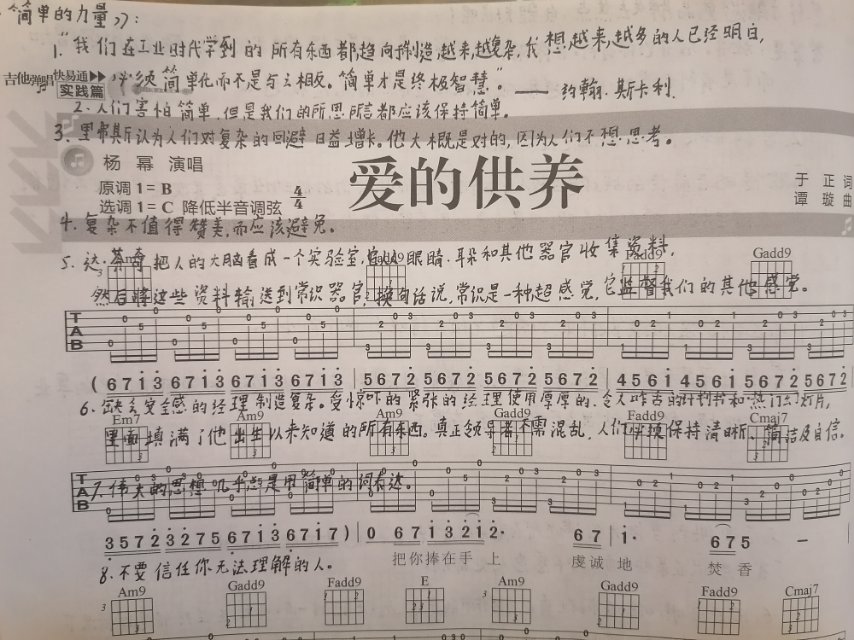 《简单的力量》:
1."我们在工业时代学到的所有东西都趋向于制造越来越复杂,我想越来越多的人已经明白,
吉他弹唱快易通
实践篇
必须简单化而不是与之相反。简单才是终极智慧"。—— 约翰·斯卡利.
2.人们害怕简单,但是我们的所思所言都应该保持简单。
3. 里弗斯认为人们对复杂的回避日益增长。他大概是对的,因为人们不想思考。
杨 幂 演唱
爱的供养
于 正 词
谭 璇 曲
原调 1=B
选调 1=C 降低半音调弦 4/4
4. 复杂不值得赞美,而应该避免。
5. 达·芬奇把人的大脑看成一个实验室,它从眼睛、耳朵和其他器官收集资料,
Am9 Gadd9 Fadd9 Gadd9
然后将这些资料输送到常识器官;换句话说,常识是一种超感觉,它监督我们的其他感觉。
T
A
B
( 6 7 1 3 6 7 1 3 6 7 1 3 6 7 1 3 | 5 6 7 2 5 6 7 2 5 6 7 2 5 6 7 2 | 4 5 6 1 4 5 6 1 5 6 7 2 5 6 7 2
6. 缺乏安全感的经理制造复杂。受惊吓的紧张的经理使用厚厚的、令人咋舌的计划书和幻灯片,
Em7 Am9 Am9 Gadd9 Fadd9 Cmaj7
里面填满了他出生以来知道的所有东西。真正领导者不需混乱,人们保持清晰、简洁及自信。
T
A
B
7. 伟大的思想几乎总是用简单的词表达。
3 5 7 2 3 2 7 5 6 7 1 3 6 7 1 7 ) | 0 6 7 1 3 2 1 2· 6 7 | 1· 6 7 5 —
把你捧在手 上 虔诚 地 焚 香
8. 不要信任你无法理解的人。
Am9 Gadd9 Fadd9 E Am9 Gadd9 Fadd9 Cmaj7